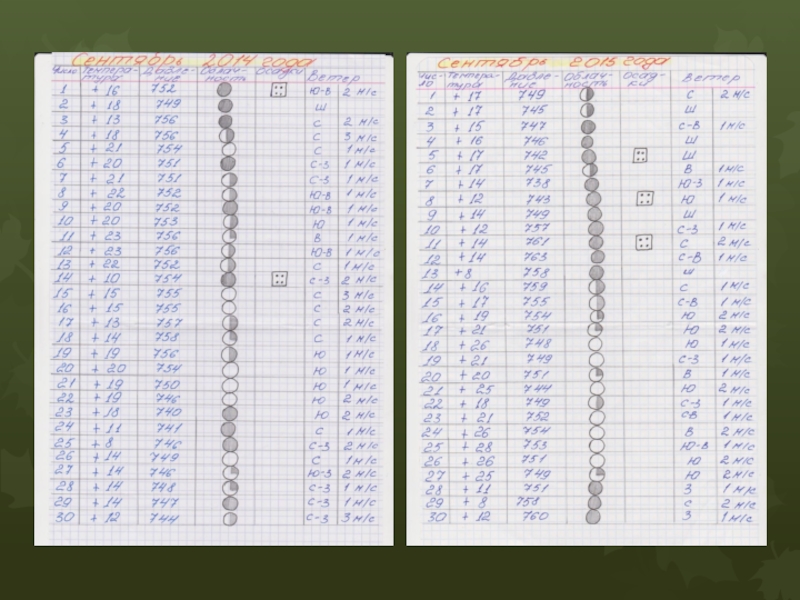 Сентябрь 2014 года
Число Темпера- Давле- Облач- Осадки Ветер
тура ние ность
1 + 16 752 Ю-В 2 м/с
2 + 18 749 Ш
3 + 13 756 С 2 м/с
4 + 18 756 С 3 м/с
5 + 21 754 С 1 м/с
6 + 20 751 С-З 1 м/с
7 + 21 751 С-З 1 м/с
8 + 22 752 Ю-В 1 м/с
9 + 20 752 Ю-В 1 м/с
10 + 20 753 Ю 1 м/с
11 + 23 756 В 1 м/с
12 + 23 756 Ю-В 1 м/с
13 + 22 752 С 1 м/с
14 + 10 754 С-З 2 м/с
15 + 15 755 С 3 м/с
16 + 15 755 С 2 м/с
17 + 13 757 С 2 м/с
18 + 14 758 С 1 м/с
19 + 19 756 Ю 1 м/с
20 + 20 754 Ю 1 м/с
21 + 19 750 Ю 1 м/с
22 + 19 746 Ю 2 м/с
23 + 18 740 Ю 2 м/с
24 + 11 741 С 1 м/с
25 + 8 746 С-З 2 м/с
26 + 14 749 С 1 м/с
27 + 14 746 Ю-З 2 м/с
28 + 14 748 С-З 1 м/с
29 + 14 747 С-З 1 м/с
30 + 12 744 С-З 3 м/с
Сентябрь 2015 года
Чис- Темпера- Давле- Облач- Осад- Ветер
ло тура ние ность ки
1 + 17 749 С 2 м/с
2 + 17 745 Ш
3 + 15 747 С-В 1 м/с
4 + 16 746 Ш
5 + 17 742 Ш
6 + 17 745 В 1 м/с
7 + 14 738 Ю-З 1 м/с
8 + 12 743 Ю 1 м/с
9 + 14 749 Ш
10 + 12 757 С-З 1 м/с
11 + 14 761 С 2 м/с
12 + 14 763 С-В 1 м/с
13 + 8 758 Ш
14 + 16 759 С 1 м/с
15 + 17 755 С-В 1 м/с
16 + 19 754 Ю 2 м/с
17 + 21 751 Ю 2 м/с
18 + 26 748 Ю 1 м/с
19 + 21 749 С-З 1 м/с
20 + 20 751 В 1 м/с
21 + 25 744 Ю 2 м/с
22 + 18 749 С-З 1 м/с
23 + 21 752 СВ 1 м/с
24 + 26 754 В 2 м/с
25 + 28 753 Ю-В 1 м/с
26 + 26 751 Ю 2 м/с
27 + 25 749 Ю 2 м/с
28 + 11 751 З 1 м/с
29 + 8 758 С 2 м/с
30 + 12 760 З 1 м/с